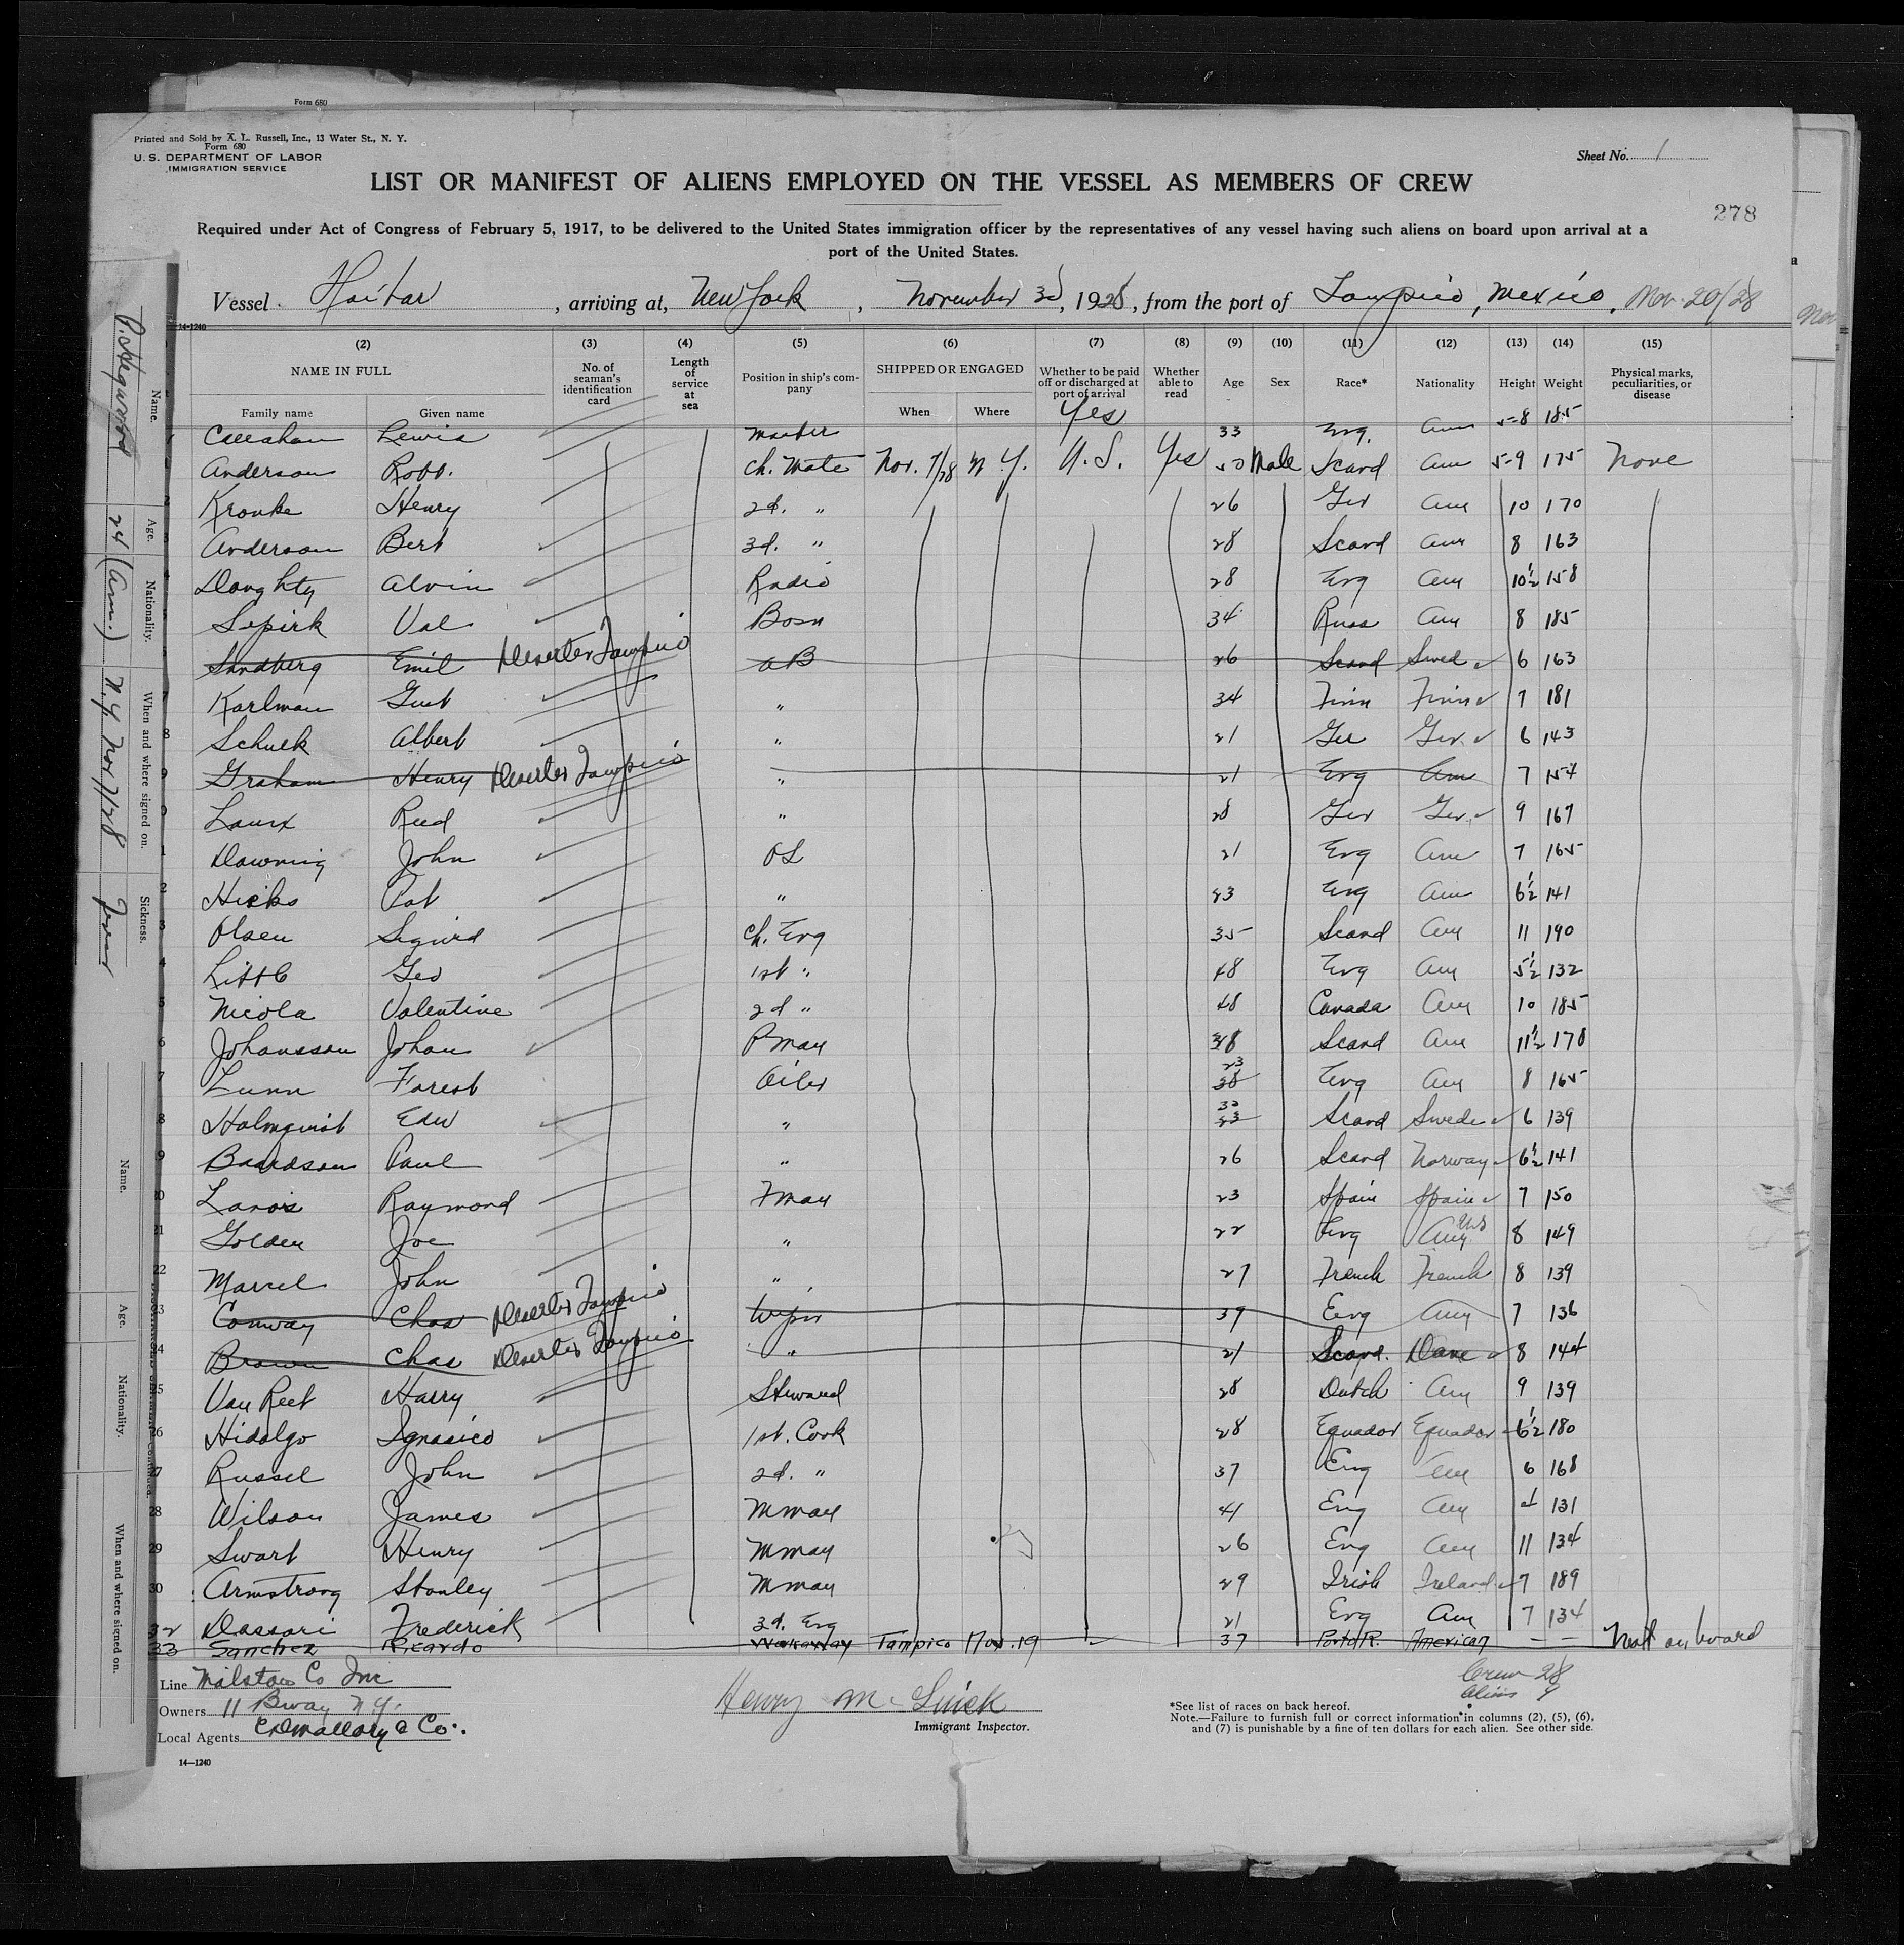 Form 680
Printed and Sold by A. L. Russell, Inc., 13 Water St., N. Y.
Form 680
U. S. DEPARTMENT OF LABOR
IMMIGRATION SERVICE
Sheet No. 1
LIST OR MANIFEST OF ALIENS EMPLOYED ON THE VESSEL AS MEMBERS OF CREW
278
Required under Act of Congress of February 5, 1917, to be delivered to the United States immigration officer by the representatives of any vessel having such aliens on board upon arrival at a
port of the United States.
Vessel , arriving at, New York , November 3d, 1928, from the port of Tampico, Mexico. Nov. 20/28
14-1240
(2) (3) (4) (5) (6) (7) (8) (9) (10) (11) (12) (13) (14) (15)
NAME IN FULL No. of seaman's identification card Length of service at sea Position in ship's company SHIPPED OR ENGAGED Whether to be paid off or discharged at port of arrival Whether able to read Age Sex Race* Nationality Height Weight Physical marks, peculiarities, or disease
Family name Given name When Where Yes
Callahan Lewis Master 33 Eng. Am 5-8 185
Anderson Robt. Ch. Mate Nov. 7/28 N.Y. U.S. Yes 50 Male Scand Am 5-9 175 None
Kronke Henry 2d. " 26 Ger Am 10 170
Anderson Bert 3d. " 28 Scand Am 8 163
Doughty Alvin Radio 28 Eng Am 10½ 158
Sepirk Val Bosn 34 Russ Am 8 185
Sandberg Emil Deserter Tampico AB 26 Scand Swed 6 163
Karlman Gust " 34 Finn Finn 7 181
Schuek Albert " 21 Ger Ger. 6 143
Graham Henry Deserter Tampico " 21 Eng Am 7 154
Laux Reed " 28 Ger Ger. 9 167
Downing John OS 21 Eng Am 7 165
Hicks Pat " 23 Eng Am 6½ 141
Olsen Sigurd Ch. Eng 35 Scand Am 11 190
Little Geo 1st " 48 Eng Am 5½ 132
Nicola Valentine 2d " 48 Canada Am 10 185
Johansson Johan Pman 38 Scand Am 11½ 178
Lunn Forest Oiler 23 38 Eng Am 8 165
Holmquist Edw " 33 23 Scand Swede 6 139
Baardson Paul " 26 Scand Norway 6½ 141
Raymond Fman 23 Spain Spain 7 150
Golden Joe " 22 Eng Am 8 149
Marcel John " 27 French French 8 139
Conway Chas Deserter Tampico Wiper 39 Eng Am 7 136
Brown Chas Deserter Tampico " 21 Scand. Dane 8 144
Van Reet Harry Steward 28 Dutch Am 9 139
Hidalgo Ignasico 1st. Cook 28 Equador Equador 6½ 180
Russel John 2d. " 37 Eng Am 6 168
Wilson James Mman 41 Eng Am 4 131
Swart Henry Mman 26 Eng Am 11 134
Armstrong Stanley Mman 29 Irish Ireland 7 189
32 Dassori Frederick 3d. Eng 21 Eng Am 7 134
33 Sanchez Ricardo Workaway Tampico Nov. 19 37 Porto R. American — — Not on board
Line Malston Co Inc
Owners 11 Bway N.Y.
Local Agents C D Mallory & Co.
Immigrant Inspector.
Crew 28
Aliens 9
*See list of races on back hereof.
Note.—Failure to furnish full or correct information in columns (2), (5), (6),
and (7) is punishable by a fine of ten dollars for each alien. See other side.
14—1240
Name. Age. Nationality. When and where signed on. Sickness.
24 (Am.) N.Y. Nov 7/28
Name. Age. Nationality. When and where signed on.